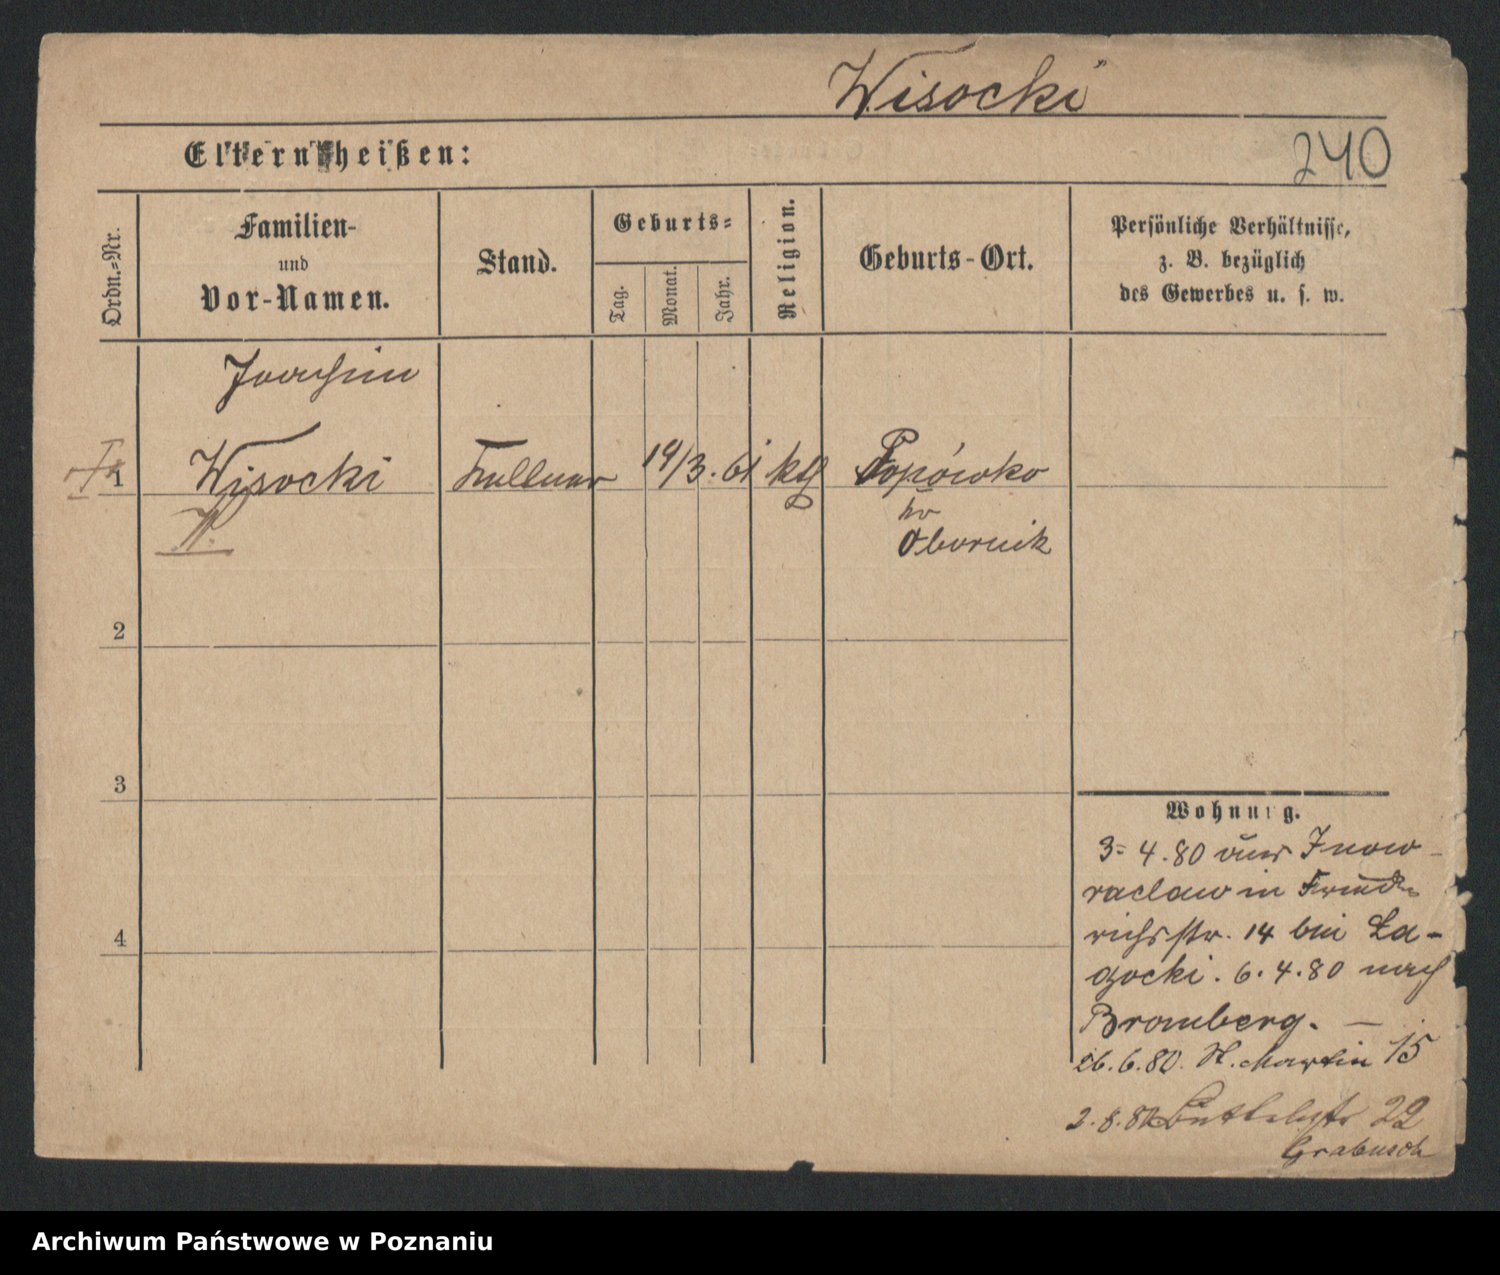 Wisocki
240
Eltern heißen:
Ordn.=Nr.
Familien-
und
Vor-Namen.
Stand.
Geburts=
Tag.
Monat.
Jahr.
Religion.
Geburts-Ort.
Persönliche Verhältnisse,
z. B. bezüglich
des Gewerbes u. s. w.
Joachim
1 Wisocki Kellner 19/3. 61 kth Popówko
Obornik
2
3
4
Wohnung.
3= 4. 80 aus Inow-
raclaw in Friede
richsstr. 14 bei La-
gocki. 6. 4. 80 nach
Bromberg. —
26. 6. 80. St. Martin 15
2. 8. 80 Büttelstr 22
Grabusch
Archiwum Państwowe w Poznaniu